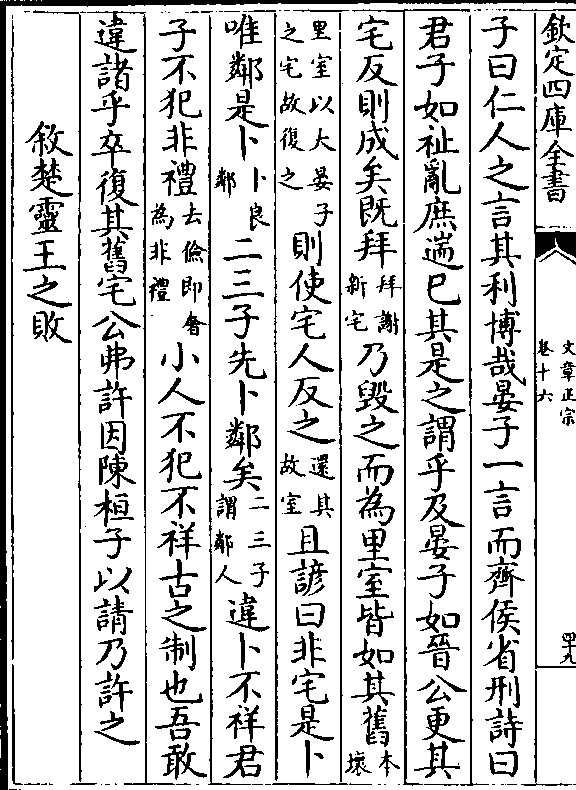 欽定四庫全書
文章正宗
卷十六
四十九
子曰仁人之言其利博哉晏子一言而齊侯省刑詩曰
君子如祉亂庶遄巳其是之謂乎及晏子如晉公更其
宅反則成矣既拜拜謝新宅乃毀之而為里室皆如其舊本壞
里室以大晏子之宅故復之則使宅人反之還其故室且諺曰非宅是卜
唯鄰是卜卜良鄰二三子先卜鄰矣二三子謂鄰人違卜不祥君
子不犯非禮去儉即奢為非禮小人不犯不祥古之制也吾敢
違諸乎卒復其舊宅公弗許因陳桓子以請乃許之
敘楚靈王之敗